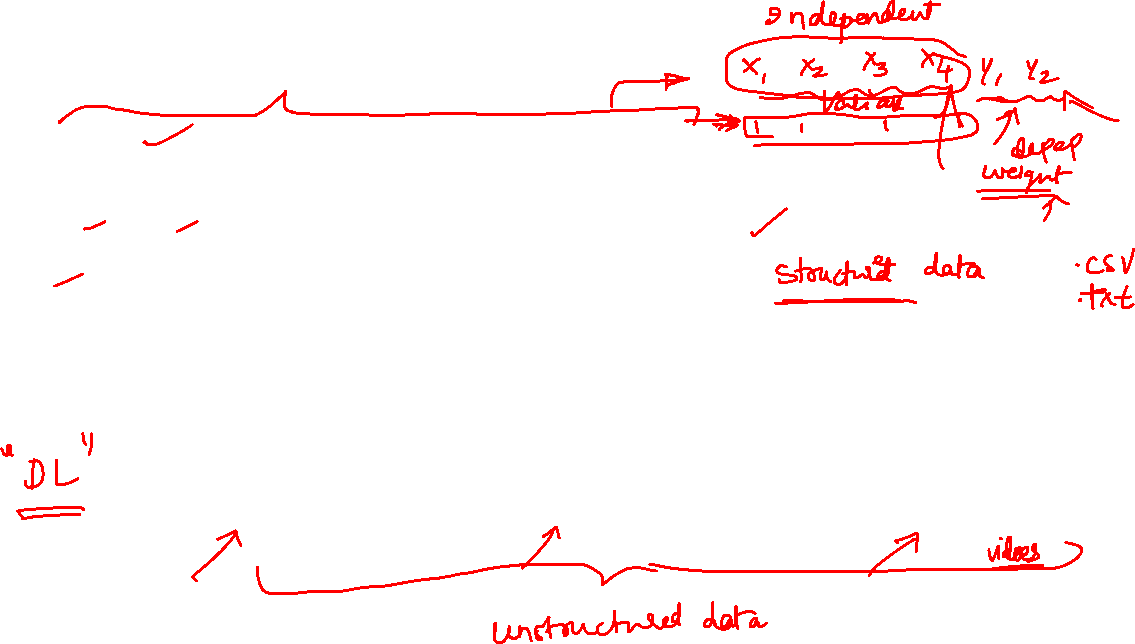 Independent
X1 X2 X3 X4 Y1 Y2
1 1 1
weight
structured data
.csv
.txt
"DL"
videos
unstructured data